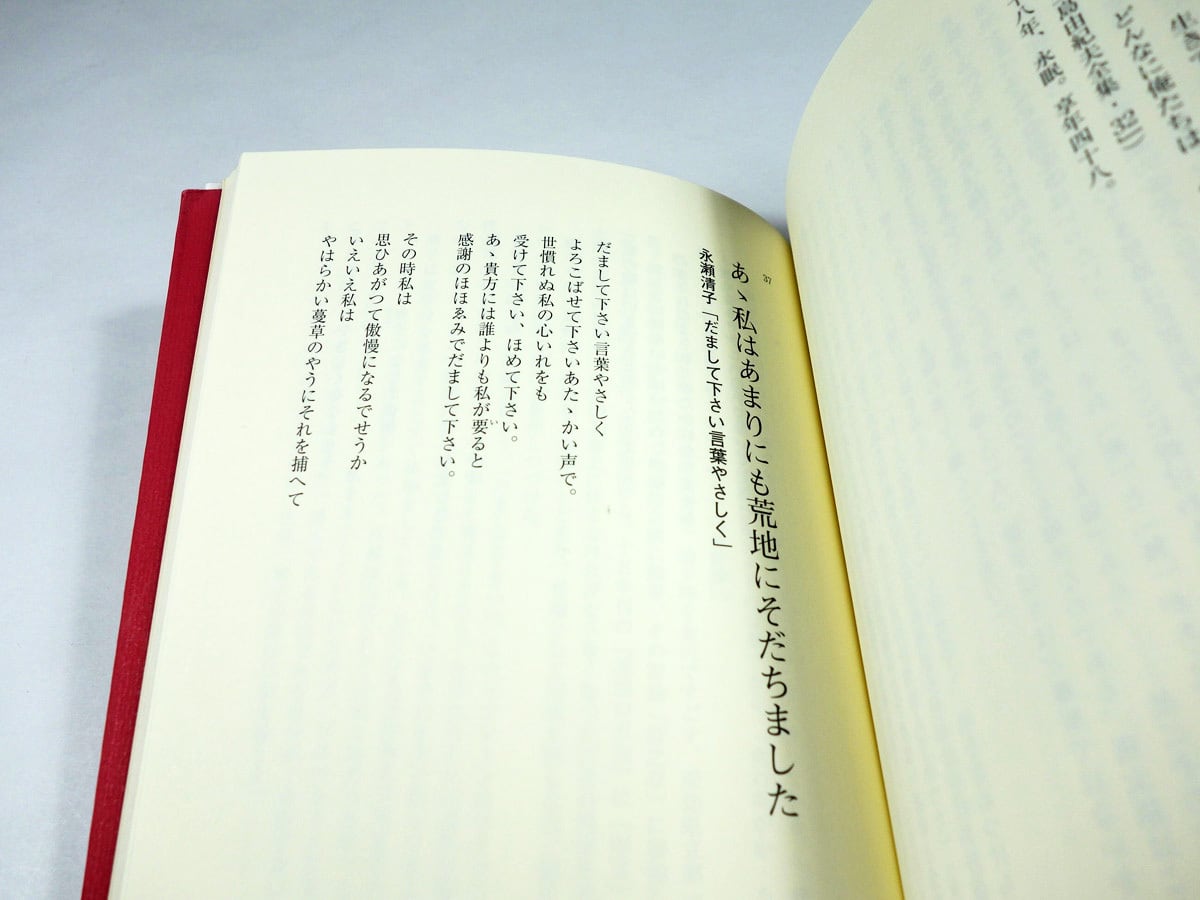 どんなに俺たちは
島由紀夫全集・32』)
八年、永眠。享年四十八。
37
あゝ私はあまりにも荒地にそだちました
永瀬清子「だまして下さい言葉やさしく」
だまして下さい言葉やさしく
よろこばせて下さいあたゝかい声で。
世慣れぬ私の心いれをも
受けて下さい、ほめて下さい。
あゝ貴方には誰よりも私が要ると
い
感謝のほほゑみでだまして下さい。
その時私は
思ひあがつて傲慢になるでせうか
いえいえ私は
やはらかい蔓草のやうにそれを捕へて